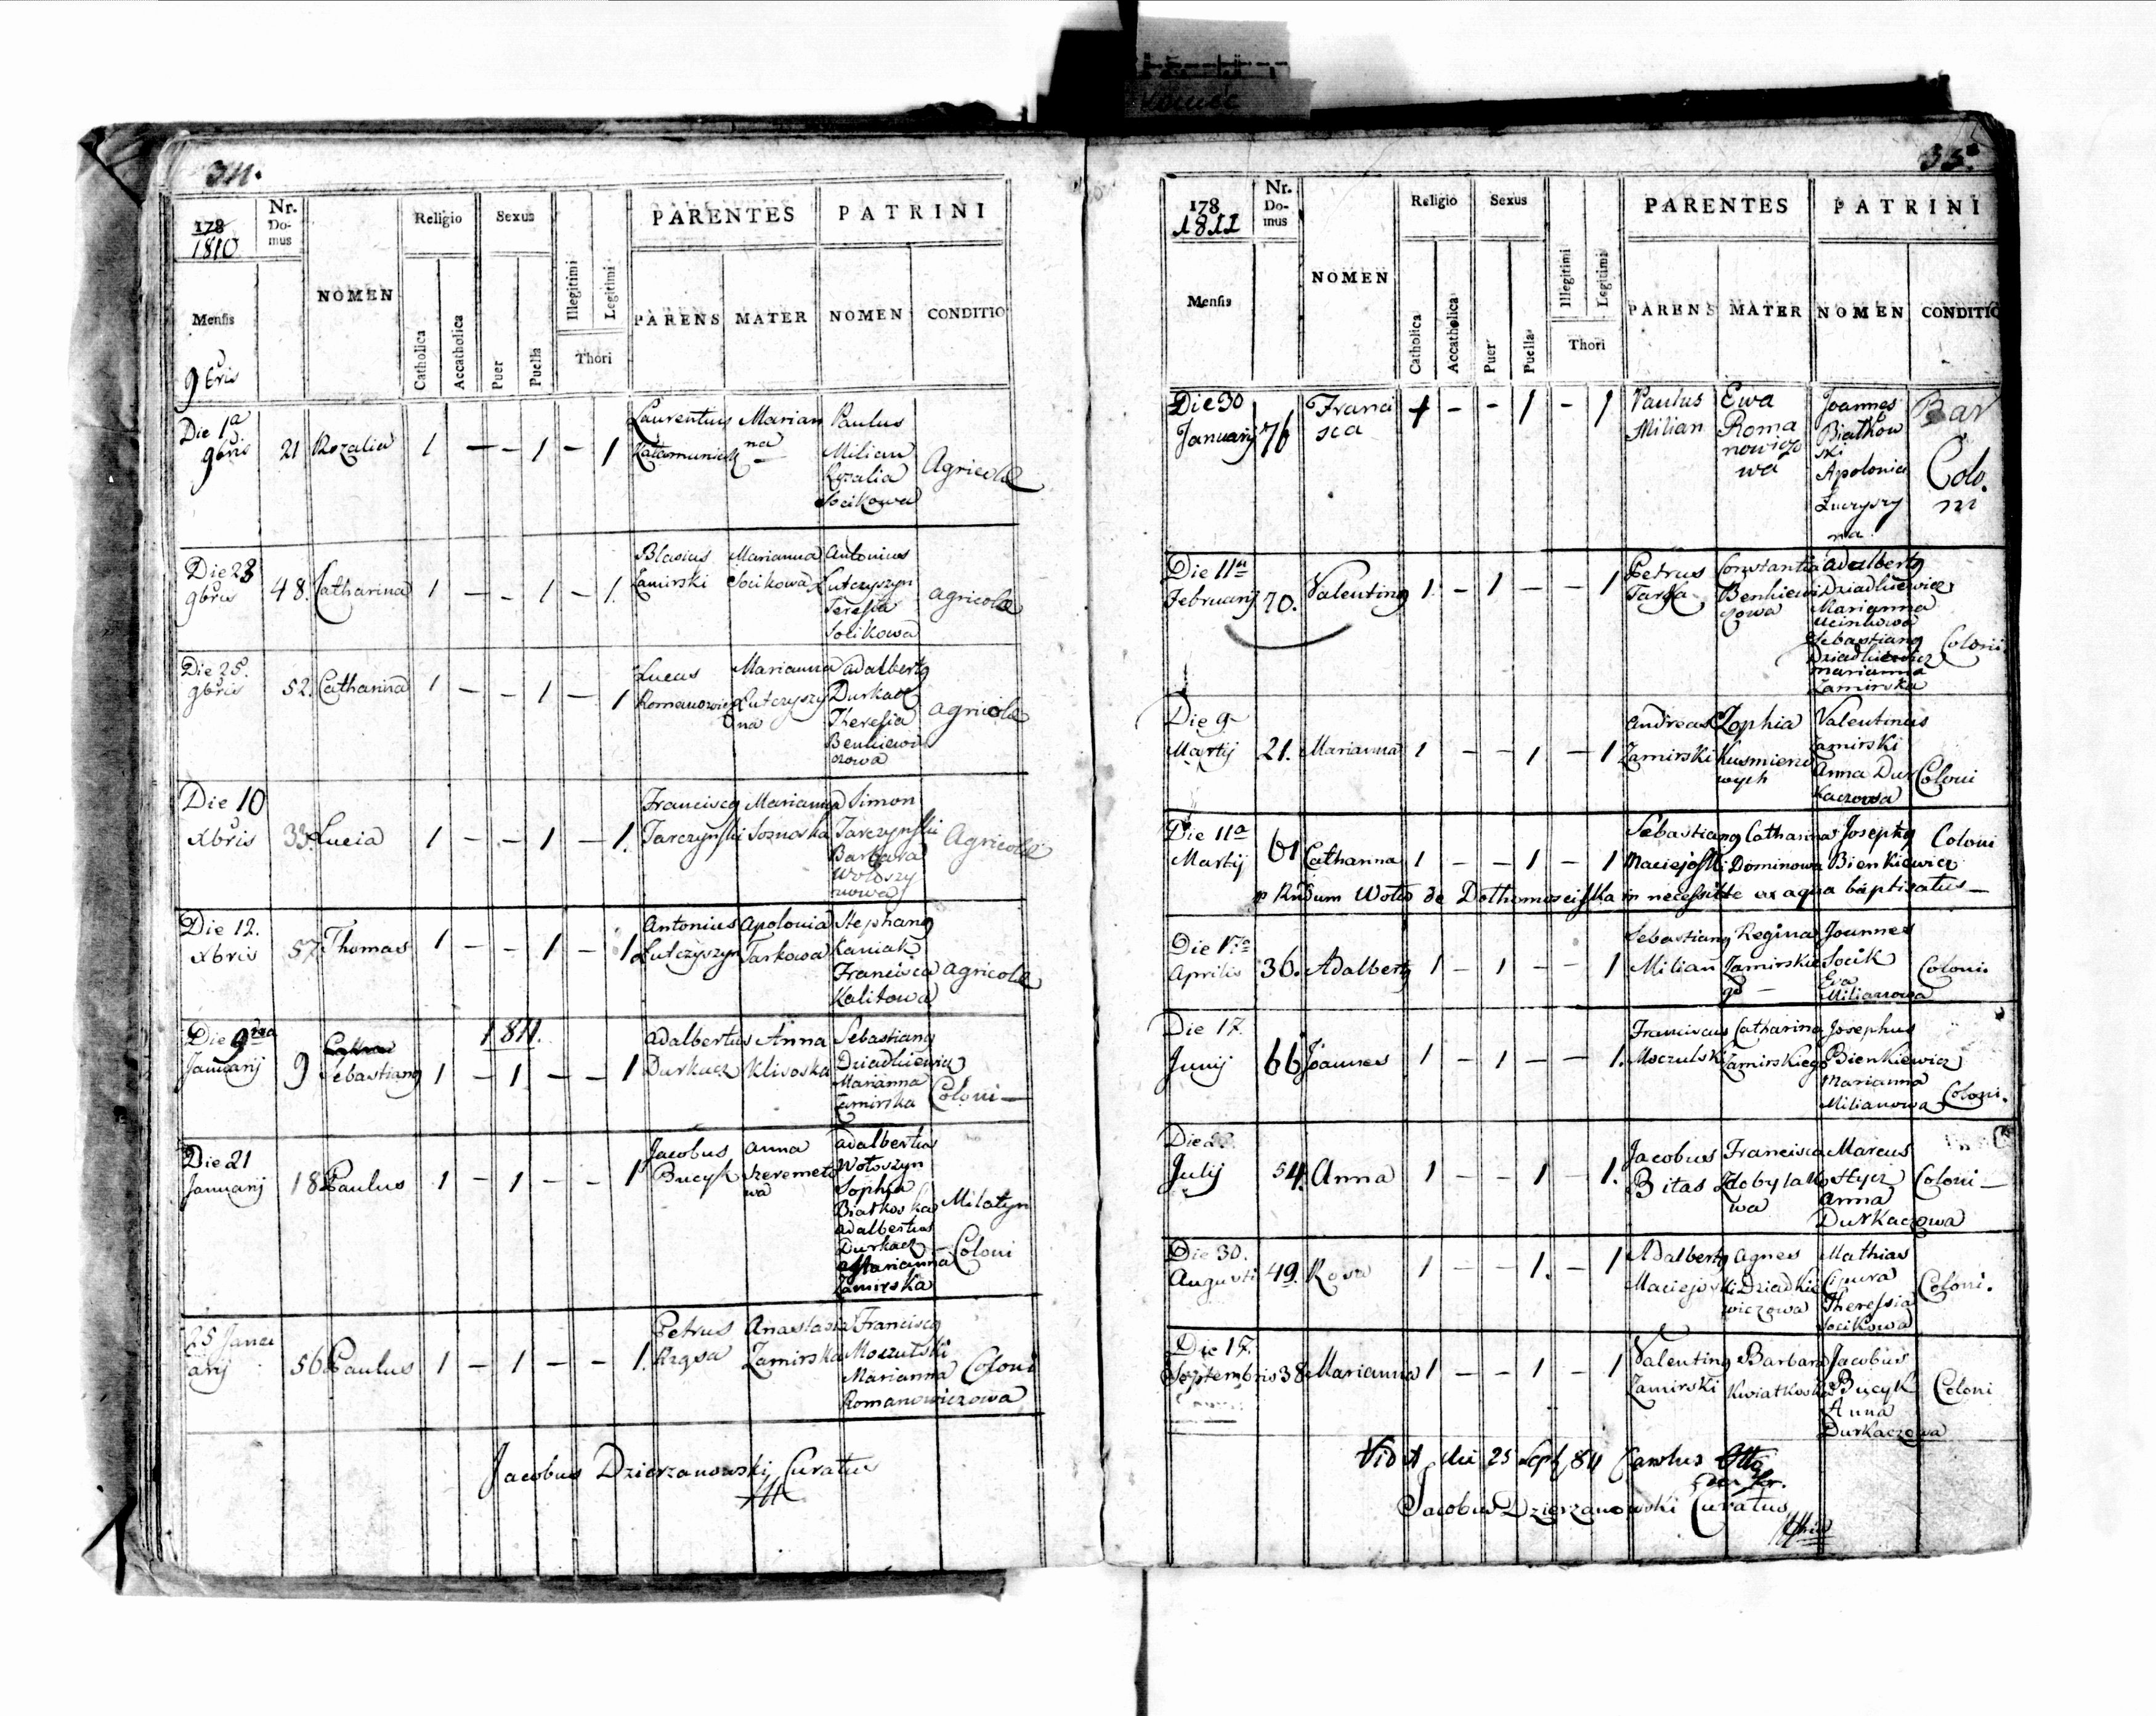 34.
178
1810
Nr.
Do-
mus
NOMEN
Religio
Sexus
PARENTES
PATRINI
Mensis
Catholica
Accatholica
Puer
Puella
Illegitimi
Legitimi
Thori
PARENS
MATER
NOMEN
CONDITIO
9bris
Die 1a
9bris 21 Rozalia 1 — — 1 — 1
Laurentius
Marian
na
Paulus
Milian
Rozalia
Socikowa
Agricolæ
Die 23
9bris 48. Catharina 1 — — 1 — 1.
Blasius
Zamirski
Marianna
Socikowa
Antonius
Lutczyszyn
Teressa
Socikowa
agricolæ
Die 25.
9bris 52. Catharina 1 — — 1 — 1
Lucas
Romanowicz
Marianna
Lutczyszy
na
adalbertg
Durkacz
Theresia
Benkiewi
czowa
agricolæ
Die 10
Xbris 33 Lucia 1 — — 1 — 1.
Franciscg
Tarczynski
Marianna
Soznoska
Simon
Tarczynski
Barbara
Woloszy
nowa
Agricolæ
Die 12.
Xbris 57. Thomas 1 — — 1 — 1
Antonius
Lutczyszyn
Apolonia
Tarkowa
Stephang
Kaniak
Francisca
Kalitowa
agricolæ
1811.
Die 9na
Januarij 9 Sebastiang 1 — 1 — — 1
adalbertus
Durkacz
Anna
Klisoska
Sebastiang
Dziadkiewicz
Marianna
Zamirska
Coloni —
Die 21
Januarij 18 Paulus 1 — 1 — — 1
Jacobus
Bucyk
anna
Szeremeto
wa
adalbertus
Wołoszyn
Sophia
Białkoska
adalbertus
Durkacz
Marianna
Zamirska
Milatyn
Coloni
25 Janu
arij 56 Paulus 1 — 1 — — 1.
Petrus
Rząsa
Anastasia
Zamirska
Franciscg
Moszulski
Marianna
Romanowiczowa
Coloni
Jacobus Dzierzanowski Curatus
35.
178
1811
Nr.
Do-
mus
NOMEN
Religio
Sexus
PARENTES
PATRINI
Mensis
Catholica
Accatholica
Puer
Puella
Illegitimi
Legitimi
Thori
PARENS
MATER
NOMEN
CONDITIO
Die 30
Januarij 76 Franci
sca 1 - - 1 - 1
Paulus
Milian
Ewa
Roma
nowiczo
wa
Joannes
Białkow
ski
Apolonia
Zuczyszy
na
Bar
Colo.
ni
Die 11a
Februarij 70. Valenting 1 — 1 — — 1
Petrus
Tarka
Constantia
Benkiewi
czowa
adalbertg
Dziadkiewicz
Marianna
Sebastiang
Dziadkiewicz
Marianna
Zamirska
Colonii
Die 9
Martij 21. Marianna 1 — — 1 — 1
Andreas
Zamirski
Zophia
Kusmierzo
wych
Valentinus
Zamirski
Anna Dur
kaczowa
Coloni
Die 11a
Martij 61 Catharina 1 — — 1 — 1
Sebastiang
Maciejoski
Catharina
Dominowa
Josephg
Bienkiewicz
Coloni
in necessitte ex aqua baptisatus —
Die 17a
Aprilis 36. Adalbertg 1 — 1 — — 1
Sebastiang
Milian
Regina
Zamirskie
go —
Joannes
Socik
Eva
Milianowa
Coloni.
Die 17.
Junij 66 Joannes 1 — 1 — — 1.
Franciscus
Moczulski
Catharina
Zamirskiego
Josephus
Bienkiewicz
Marianna
Milianowa
Coloni.
Die
Julij 54. Anna 1 — — 1 — 1.
Jacobus
Bitas
Francisca
Zdobylako
wa
Marcus
Hycz
Anna
Durkaczowa
Coloni —
Die 30.
Augusti 49. Rosa 1 — — 1. — 1
Adalbertg
Maciejoski
Agnes
Dziadkie
wiczowa
Mathias
Cipura
Theressia
Socikowa
Coloni.
Die 17.
Septembris 38 Marianna 1 — — 1 — 1
Valenting
Zamirski
Barbara
Kwiatkoska
Jacobus
Bucyk
Anna
Durkaczowa
Coloni
Vidit die 25 Sept 811 Carolus Otto
Jacobus Dzierzanowski Curatus